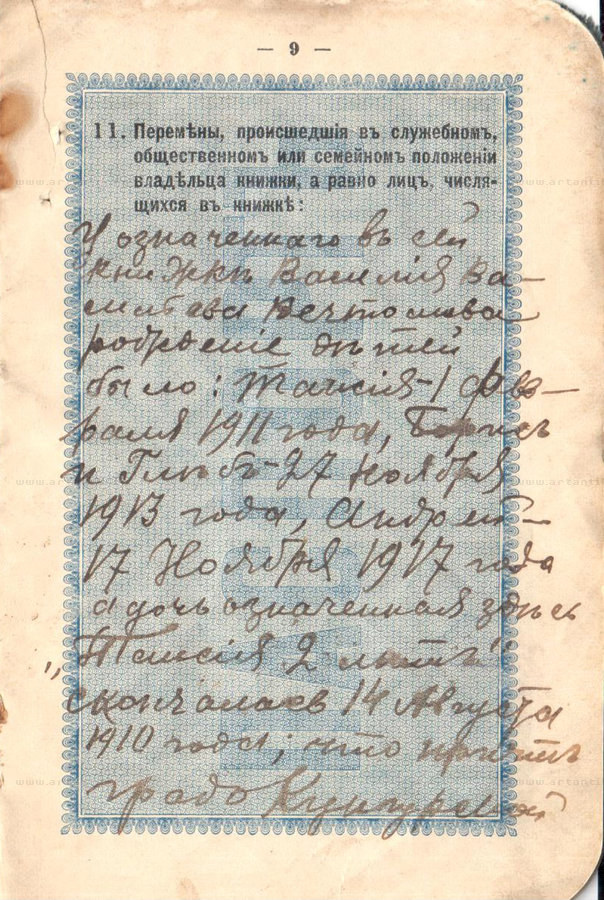 — 9 —
11. Перемѣны, происшедшія въ служебномъ,
общественномъ или семейномъ положеніи
владѣльца книжки, а равно лицъ, числя-
щихся въ книжкѣ:
У означеннаго въ сей
книжкѣ Василія Ва-
сильева Вечтомова
рожденіе дѣтей
было: Таисія - 1 Фев-
раля 1911 года, Борисъ
и Глѣбъ - 27 Ноября
1913 года, Андрей -
17 Ноября 1917 года
а дочь означенная здѣсь
„Таисія 2 лѣтъ"
скончалась 14 Августа
1910 года; что причтъ
градо Кунгурской